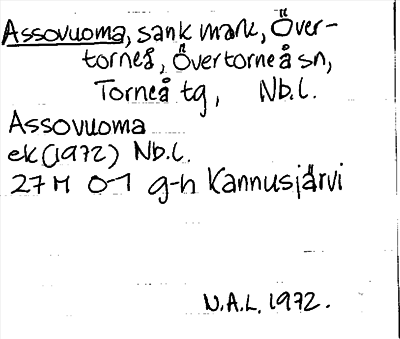 Assovuoma, sank mark, Över-
torneå, Övertorneå sn,
Torneå tg, Nb.l.
Assovuoma
ek(1972) Nb.l.
27M 0-1 g-h Kannusjärvi
N.A.L. 1972.